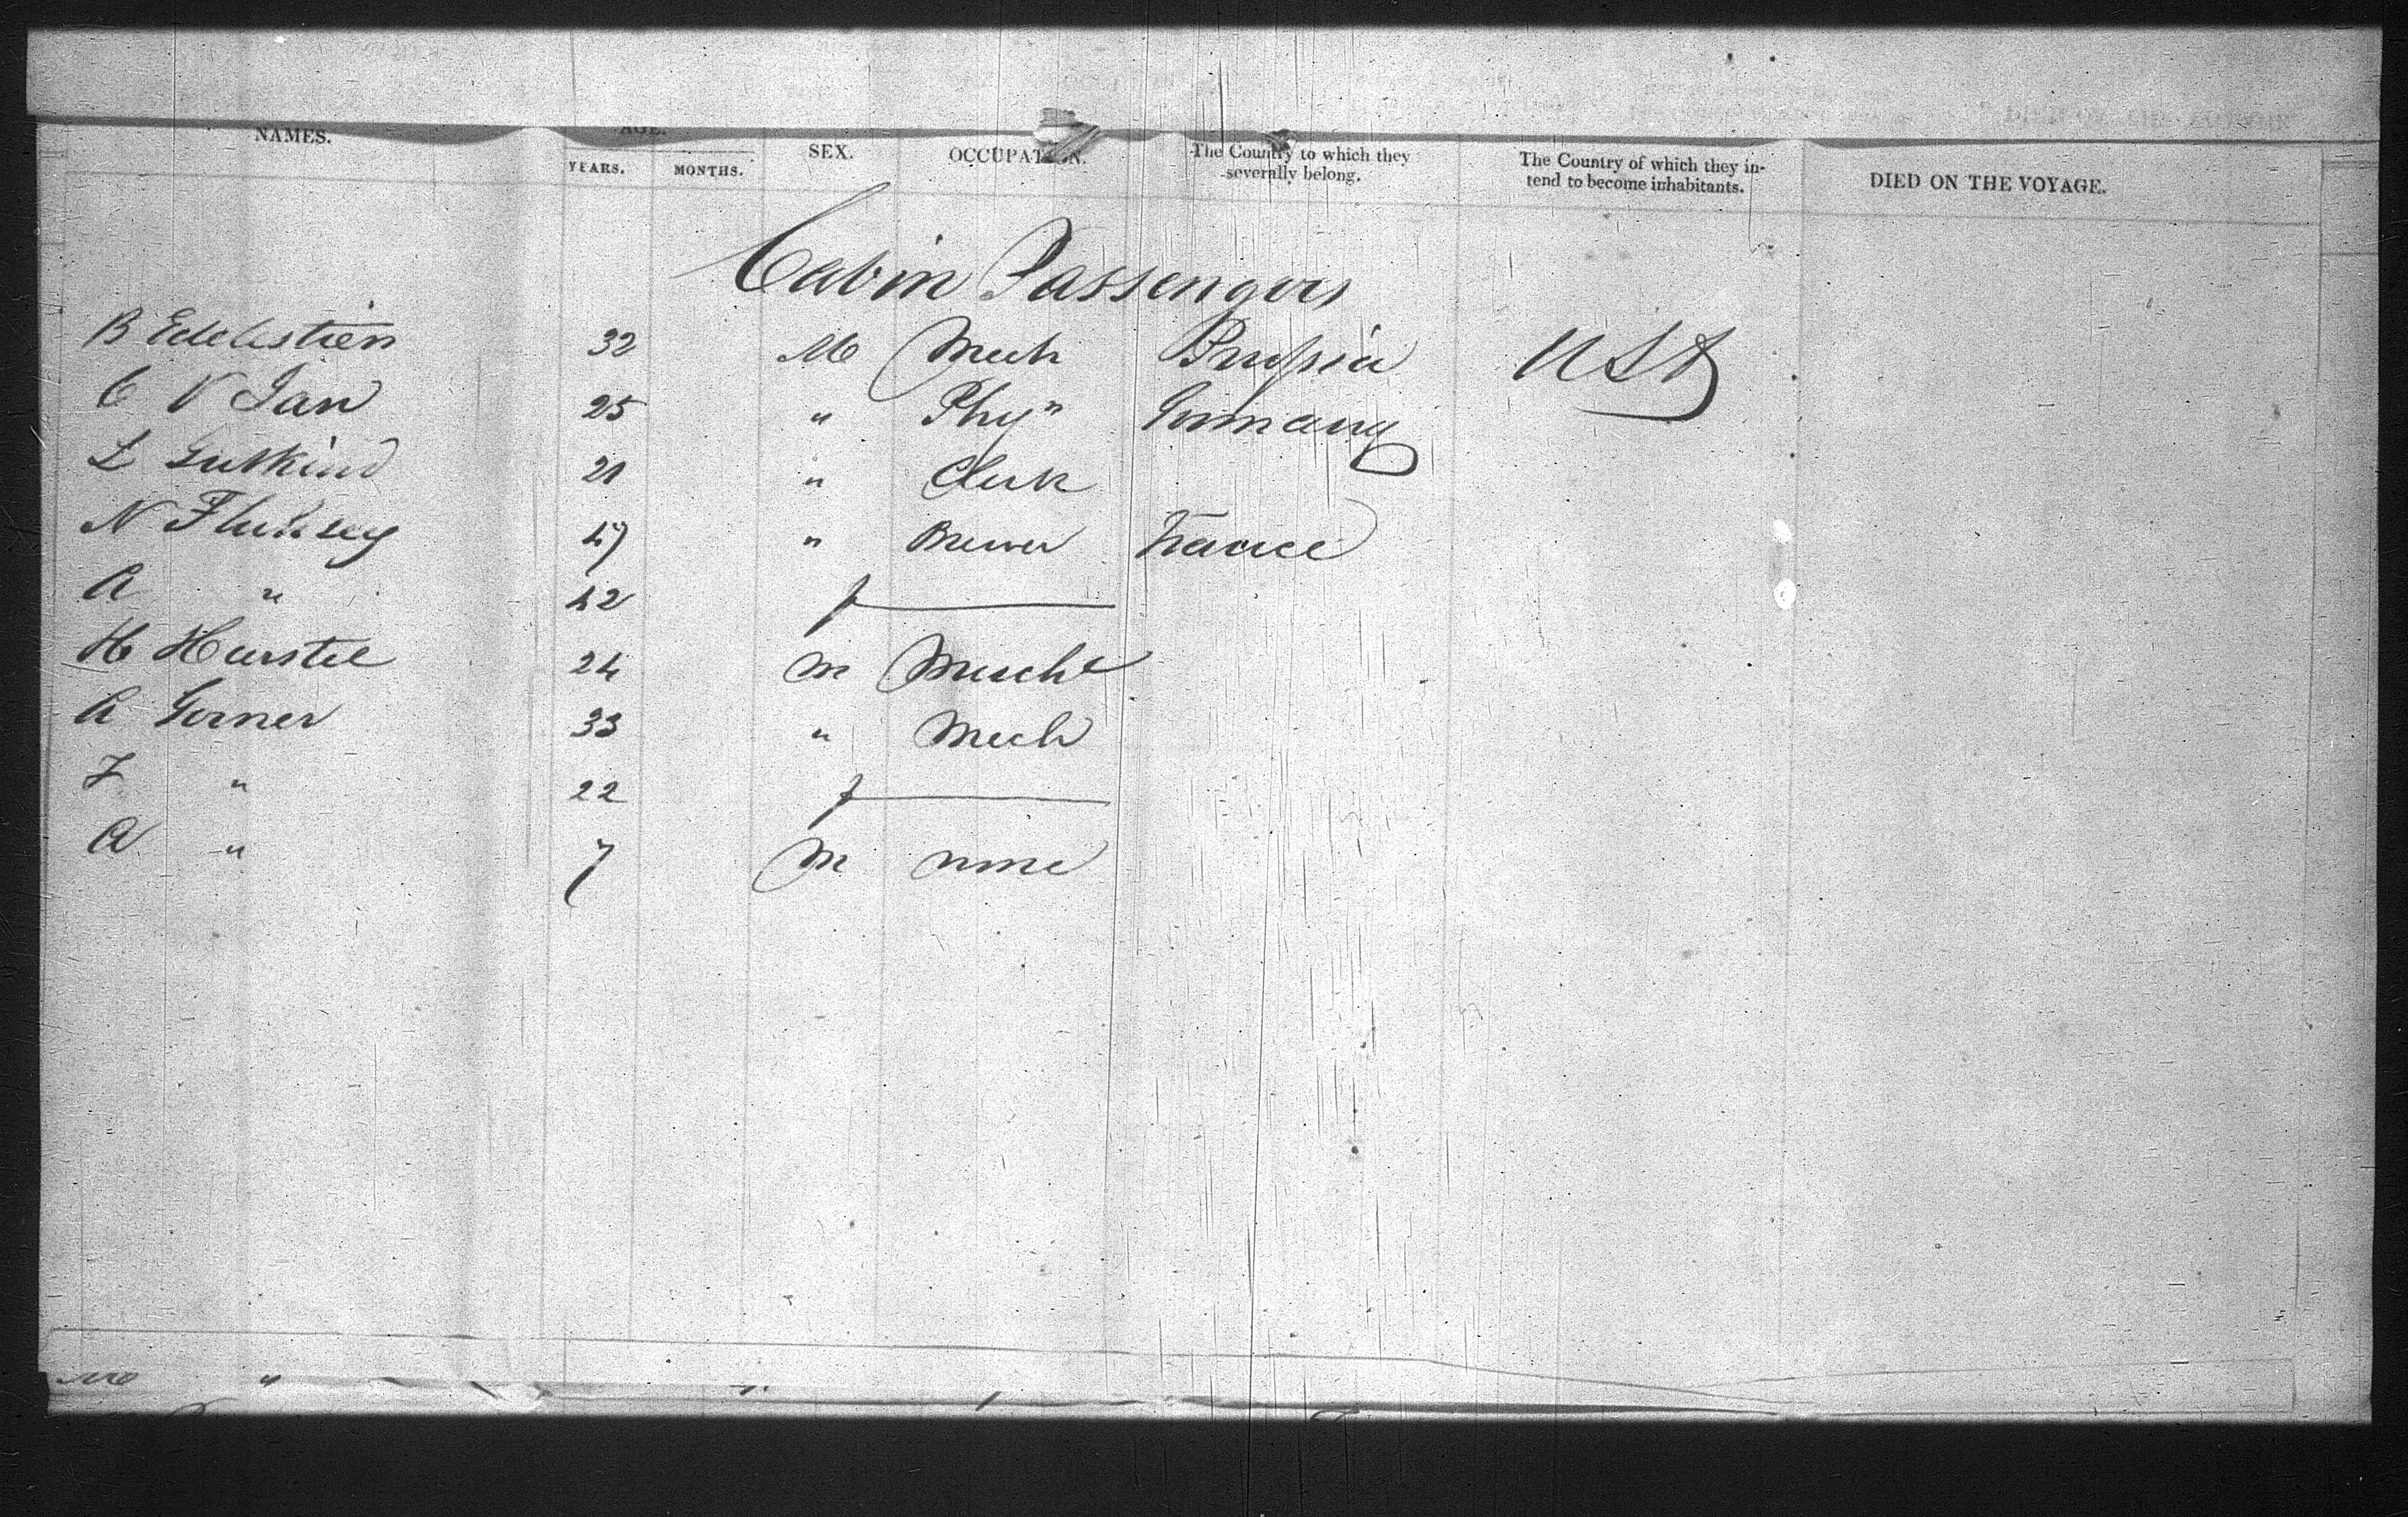 NAMES. AGE. SEX. OCCUPATION. The Country to which they severally belong. The Country of which they intend to become inhabitants. DIED ON THE VOYAGE.
YEARS. MONTHS.
Cabin Passengers
B Edelstien 32 M Mech Prussia USA
C V Jan 25 " Phyn Germany
L Gutkind 21 " Clerk
N 47 " Brewer France
A " 42 f
H Hurstel 24 m Mercht
A Gerner 33 " Mech
F " 22 f
A " 7 m none